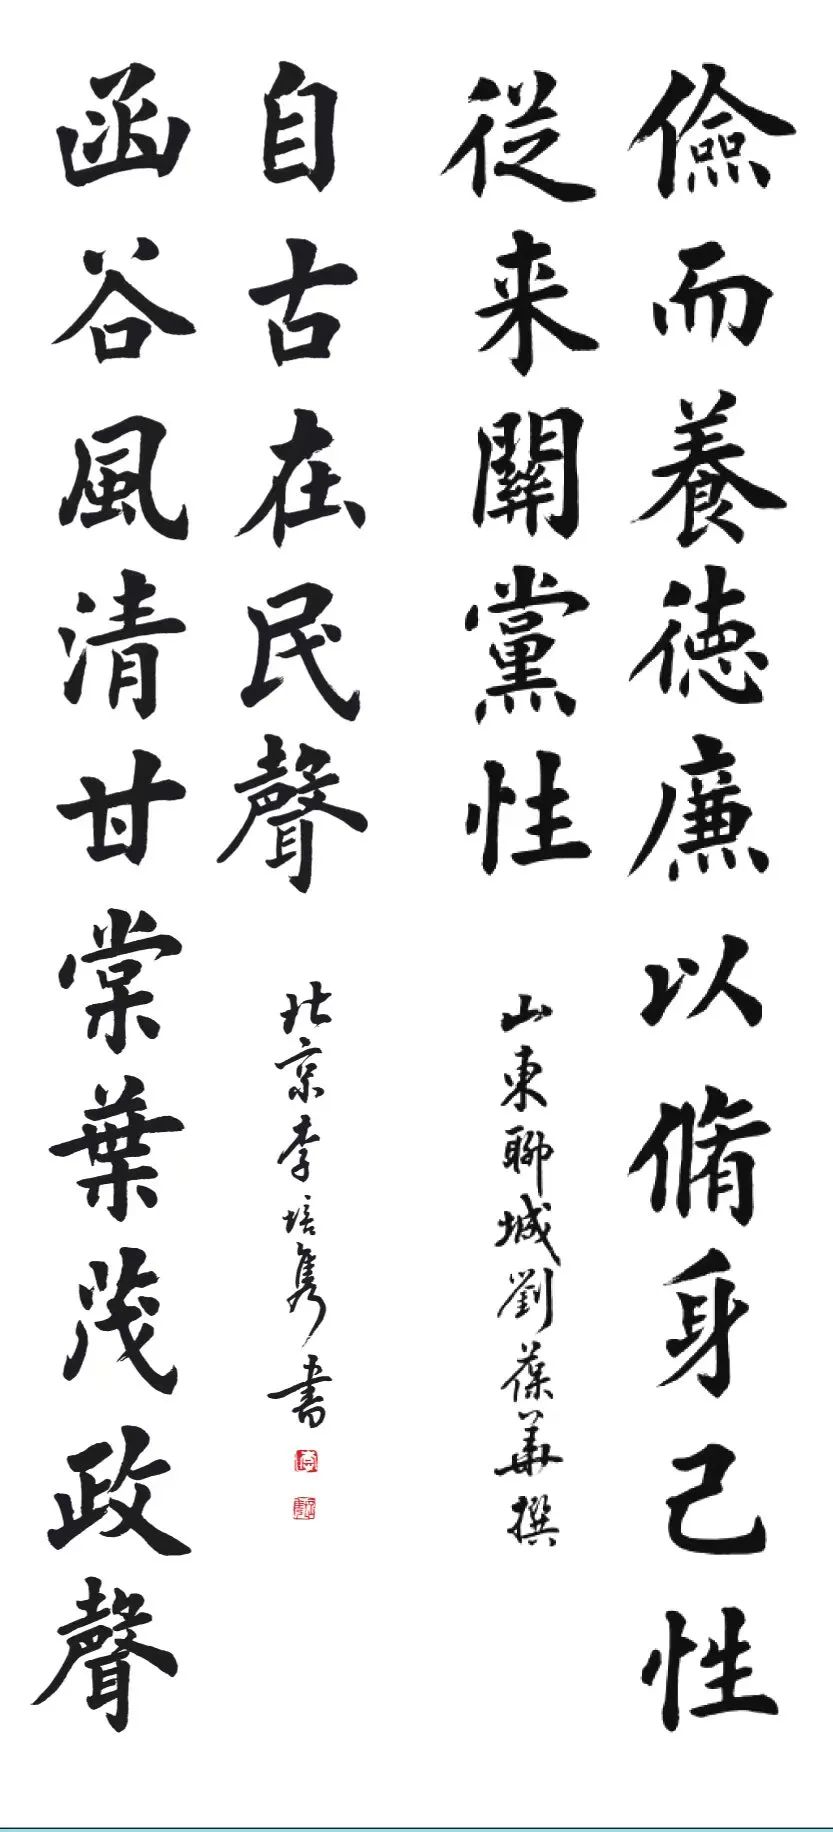 儉而養徳廉以脩身己性
従来關黨性
山東聊城劉葆華撰
函谷風清甘棠葉茂政聲
自古在民聲
北京李培隽書